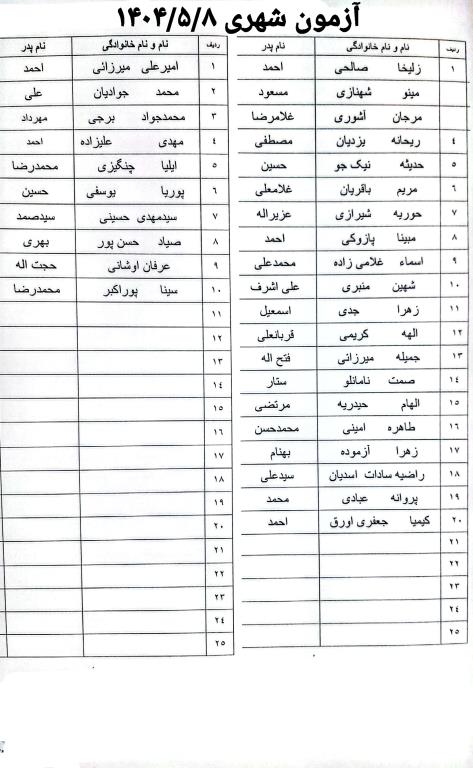 آزمون شهری ۱۴۰۴/۵/۸
ردیف نام و نام خانوادگی نام پدر
۱ زلیخا صالحی احمد
مینو شهنازی مسعود
مرجان آشوری غلامرضا
۴ ریحانه یزدیان مصطفی
۵ حدیثه نیک جو حسین
۶ مریم باقریان غلامعلی
۷ حوریه شیرازی عزیراله
۸ مبینا پازوکی احمد
۹ اسماء غلامی زاده محمدعلی
۱۰ شهین منبری علی اشرف
۱۱ زهرا جدی اسمعیل
۱۲ الهه کریمی قربانعلی
۱۳ جمیله میرزائی فتح اله
۱۴ صمت نامانلو ستار
۱۵ الهام حیدریه مرتضی
۱۶ طاهره امینی محمدحسن
۱۷ زهرا آزموده بهنام
۱۸ راضیه سادات اسدیان سیدعلی
۱۹ پروانه عبادی محمد
۲۰ کیمیا جعفری اورق احمد
۲۱
۲۲
۲۳
۲۴
۲۵
ردیف نام و نام خانوادگی نام پدر
۱ امیرعلی میرزائی احمد
۲ محمد جوادیان علی
۳ محمدجواد برجی مهرداد
۴ مهدی علیزاده احمد
۵ ایلیا چنگیزی محمدرضا
۶ پوریا یوسفی حسین
۷ سیدمهدی حسینی سیدصمد
۸ صیاد حسن پور بهری
۹ عرفان اوشانی حجت اله
۱۰ سینا پوراکبر محمدرضا
۱۱
۱۲
۱۳
۱۴
۱۵
۱۶
۱۷
۱۸
۱۹
۲۰
۲۱
۲۲
۲۳
۲۴
۲۵